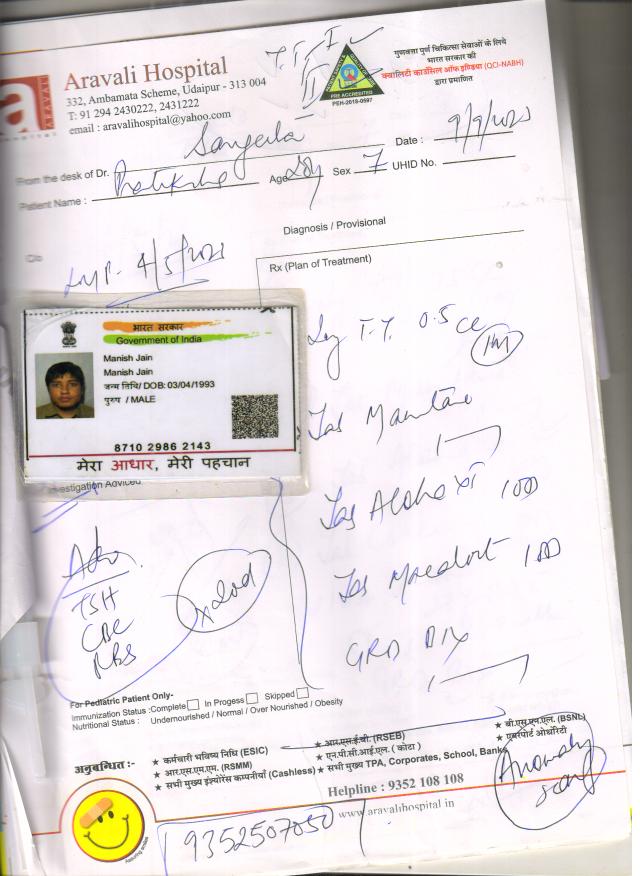 Aravali Hospital
332, Ambamata Scheme, Udaipur - 313 004
T: 91 294 2430222, 2431222
email : aravalihospital@yahoo.com
PRE ACCREDITED
PEH-2019-0597
गुणवत्ता पुर्ण चिकित्सा सेवाओं के लिये
भारत सरकार की
क्वालिटी काउंसिल ऑफ इण्डिया (QCI-NABH)
द्वारा प्रमाणित
From the desk of Dr. Sangeeta Date : 9/9/2023
Patient Name : Age Sex F UHID No.
C/o
Diagnosis / Provisional
LMP- 4/5/2023
Rx (Plan of Treatment)
Inj T.T. 0.5 cc
IM
भारत सरकार
Government of India
Manish Jain
Manish Jain
जन्म तिथि/ DOB: 03/04/1993
पुरुष / MALE
8710 2986 2143
मेरा आधार, मेरी पहचान
Investigation Adviced
Tab
Tab 1 OD
Tab 1 OD
GRD BIX
Adv.
TSH
CBC
RBS
For Pediatric Patient Only-
Immunization Status :Complete In Progess Skipped
Nutritional Status : Undernourished / Normal / Over Nourished / Obesity
अनुबन्धित :-
★ कर्मचारी भविष्य निधि (ESIC) ★ आर.एस.ई.बी. (RSEB) ★ बी.एस.एन.एल. (BSNL)
★ आर.एस.एम.एम. (RSMM) ★ एन.पी.सी.आई.एल. ( कोटा ) ★ एयरपोर्ट ऑथॉरिटी
★ सभी मुख्य इंश्योरेंस कम्पनीयाँ (Cashless) ★ सभी मुख्य TPA, Corporates, School, Banks
Helpline : 9352 108 108
www.aravalihospital.in
Anomaly
scan
9352507050